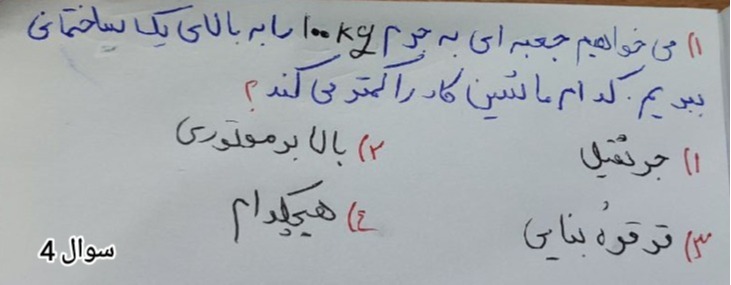 ۱) می خواهیم جعبه ای به جرم ۱۰۰kg را به بالای یک ساختمانی
ببریم. کدام ماشین کار را کمتر می کند؟
۱) جرثقیل ۲) بالابر موتوری
۳) قرقرهٔ بنایی ۴) هیچکدام
سوال 4